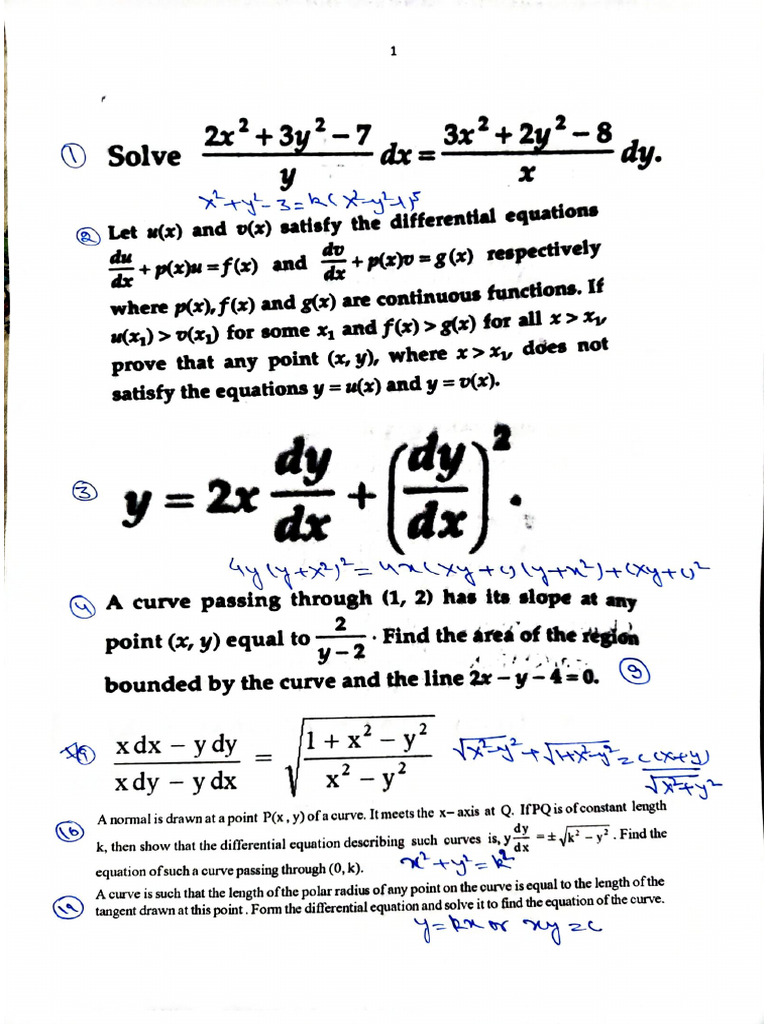 1
① Solve (2x² + 3y² – 7)/y dx = (3x² + 2y² – 8)/x dy.
x² + y² – 3 = k(x² – y² + 1)⁵
② Let u(x) and v(x) satisfy the differential equations
du/dx + p(x)u = f(x) and dv/dx + p(x)v = g(x) respectively
where p(x), f(x) and g(x) are continuous functions. If
u(x₁) > v(x₁) for some x₁ and f(x) > g(x) for all x > x₁,
prove that any point (x, y), where x > x₁, does not
satisfy the equations y = u(x) and y = v(x).
③ y = 2x dy/dx + (dy/dx)².
4y(y+x²)² = 4x(xy+c)(y+x²)+(xy+c)²
④ A curve passing through (1, 2) has its slope at any
point (x, y) equal to 2/(y – 2). Find the area of the region
bounded by the curve and the line 2x – y – 4 = 0. ⑨
(x dx – y dy)/(x dy – y dx) = √((1 + x² – y²)/(x² – y²)) √x²-y² + √1+x²-y² = c(x+y)/√x²+y²
A normal is drawn at a point P(x , y) of a curve. It meets the x– axis at Q. If PQ is of constant length
⑯ k, then show that the differential equation describing such curves is, y dy/dx = ± √(k² – y²) . Find the
equation of such a curve passing through (0, k). x² + y² = k²
A curve is such that the length of the polar radius of any point on the curve is equal to the length of the
tangent drawn at this point . Form the differential equation and solve it to find the equation of the curve.
y = kx or xy = c